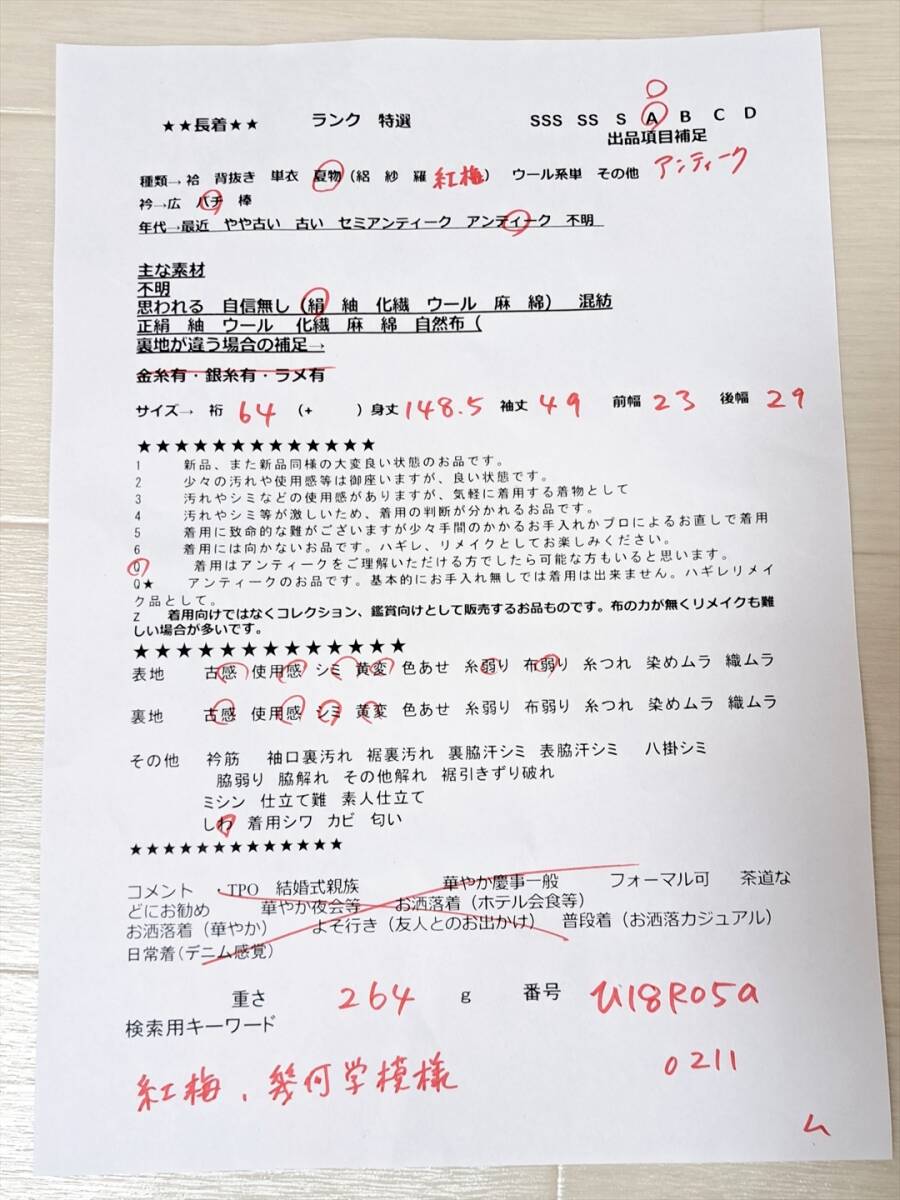 ★★長着★★ ランク 特選 SSS SS S A B C D
出品項目補足
種類→ 袷 背抜き 単衣 夏物（絽 紗 羅 紅梅） ウール系単 その他 アンティーク
衿→広 バチ 棒
年代→最近 やや古い 古い セミアンティーク アンティーク 不明
主な素材
不明
思われる 自信無し（絹 紬 化繊 ウール 麻 綿） 混紡
正絹 紬 ウール 化繊 麻 綿 自然布（
裏地が違う場合の補足→
金糸有・銀糸有・ラメ有
サイズ→ 裄 64 （+ ）身丈 148.5 袖丈 49 前幅 23 後幅 29
★★★★★★★★★★★★★
1 新品、また新品同様の大変良い状態のお品です。
2 少々の汚れや使用感等は御座いますが、良い状態です。
3 汚れやシミなどの使用感がありますが、気軽に着用する着物として
4 汚れやシミ等が激しいため、着用の判断が分かれるお品です。
5 着用に致命的な難がございますが少々手間のかかるお手入れかプロによるお直しで着用
6 着用には向かないお品です。ハギレ、リメイクとしてお楽しみください。
Q 着用はアンティークをご理解いただける方でしたら可能な方もいると思います。
Q★ アンティークのお品です。基本的にお手入れ無しでは着用は出来ません。ハギレリメイ
ク品として。
Z 着用向けではなくコレクション、鑑賞向けとして販売するお品ものです。布の力が無くリメイクも難
しい場合が多いです。
★★★★★★★★★★★★★
表地 古感 使用感 シミ 黄変 色あせ 糸弱り 布弱り 糸つれ 染めムラ 織ムラ
裏地 古感 使用感 シミ 黄変 色あせ 糸弱り 布弱り 糸つれ 染めムラ 織ムラ
その他 衿筋 袖口裏汚れ 裾裏汚れ 裏脇汗シミ 表脇汗シミ 八掛シミ
脇弱り 脇解れ その他解れ 裾引きずり破れ
ミシン 仕立て難 素人仕立て
しわ 着用シワ カビ 匂い
★★★★★★★★★★★★★
コメント ・TPO 結婚式親族 華やか慶事一般 フォーマル可 茶道な
どにお勧め 華やか夜会等 お洒落着（ホテル会食等）
お洒落着（華やか） よそ行き（友人とのお出かけ） 普段着（お洒落カジュアル）
日常着（デニム感覚）
重さ 264 g 番号 U18R05a
検索用キーワード
0211
紅梅、幾何学模様
ム